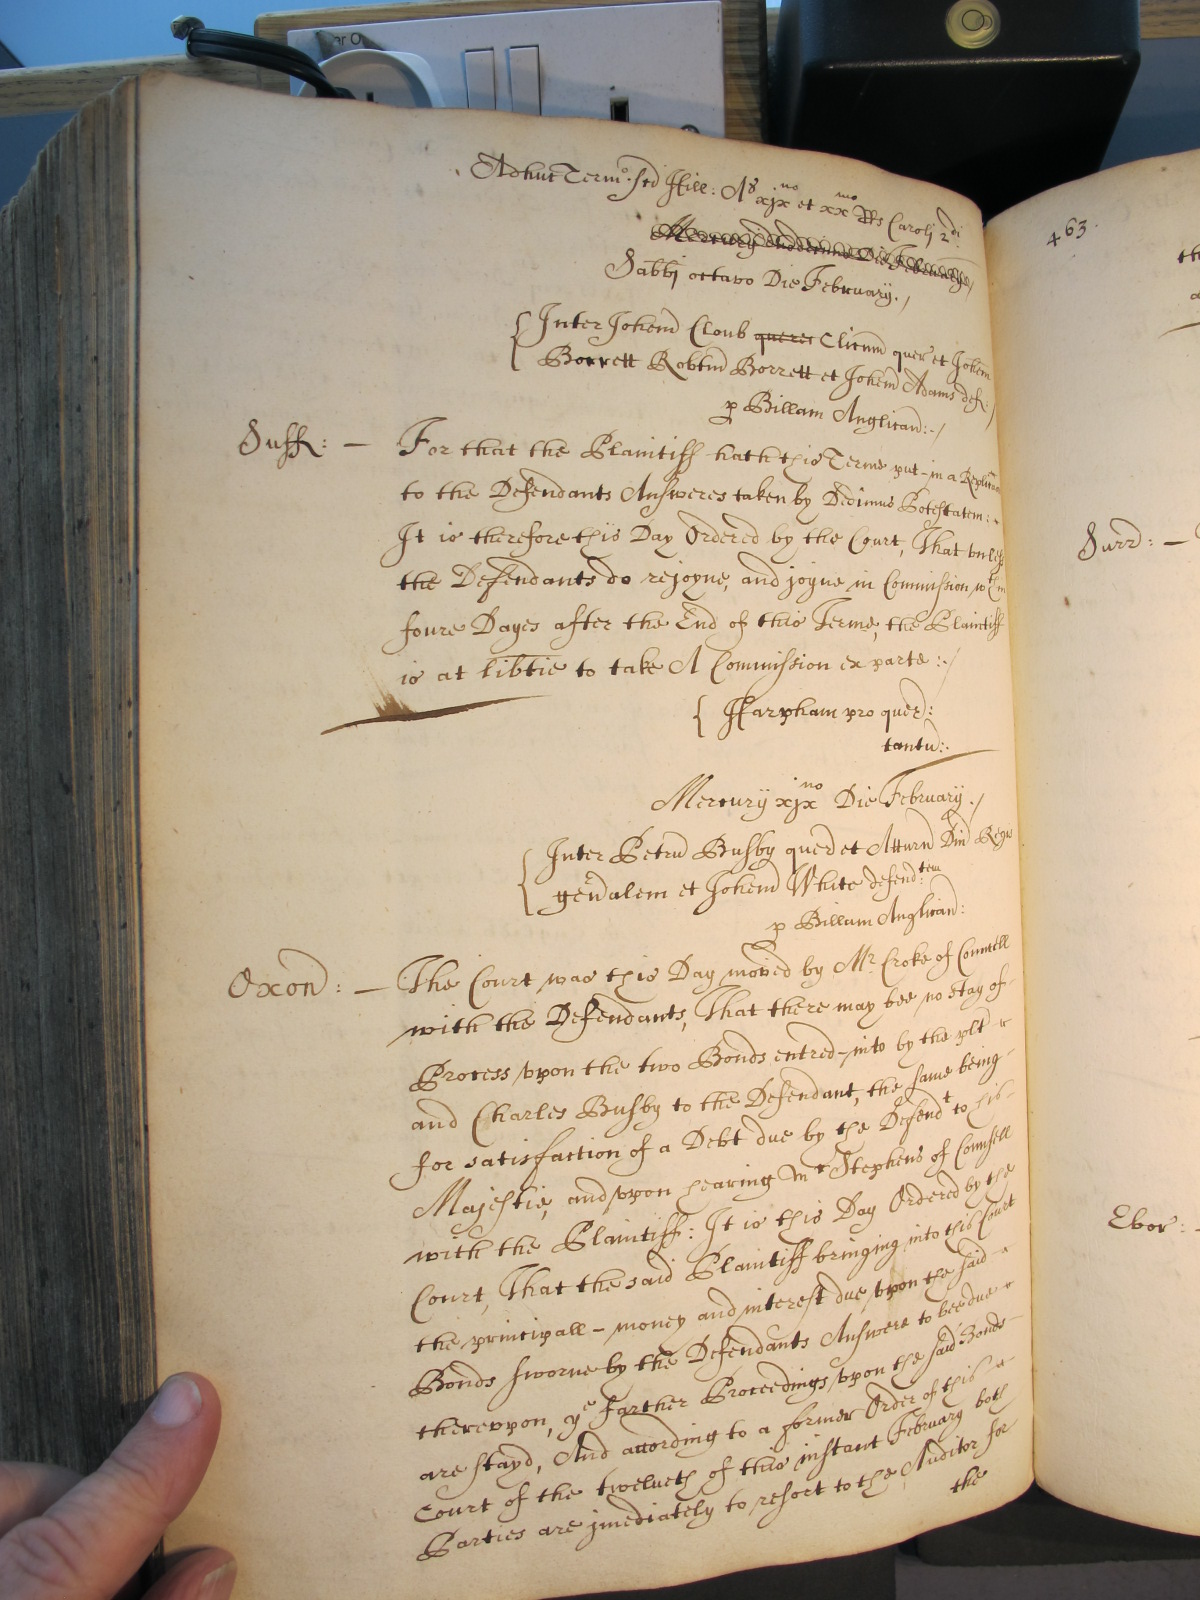 Adhuc Termo: Scd Hill: Ao xixno et xxmo Rs Caroli 2di
Sabbi octavo Die February./
Inter Johem Cloub queres Clicum quer et Johem
Borrett Robtm Borrett et Johem Adams defts:/
p Billam Anglican:./
Suff: — For that the Plaintiff hath this Terme put in a Replicac
to the Defendants Answeres taken by Dedimus Potestatem:
It is therefore this Day Ordered by the Court, That unless
the Defendants do rejoyne, and joyne in Commission wthin
foure Dayes after the End of this Terme, the Plaintiff
is at libtie to take A Commission ex parte:./
Harpham pro quer:
tantu:.
Mercury xixno Die February./
Inter Petru Busby quer et Atturn Dni Regis
genalem et Johem White defendtem
p Billam Anglican:
Oxon: — The Court was this Day moved by Mr. Croke of Councell
with the Defendants, That there may bee no stay of
Process upon the two Bonds entred into by the plt
and Charles Busby to the Defendant, the same being
for satisfaction of a Debt due by the Defendt to his
Majestie, and upon hearing Mr Stephens of Counsell
with the Plaintiff: It is this Day Ordered by the
Court, That the said Plaintiff bringing into this Court
the principall money and interest due upon the said
Bonds sworne by the Defendants Answere to bee due
thereupon, ye farther Proceedings upon the said Bonds
are stayd, And according to a former Order of this
Court of the twelveth of this instant February both
Parties are imediately to resort to the Auditor for
the
463.
Surr: —
Ebor: -